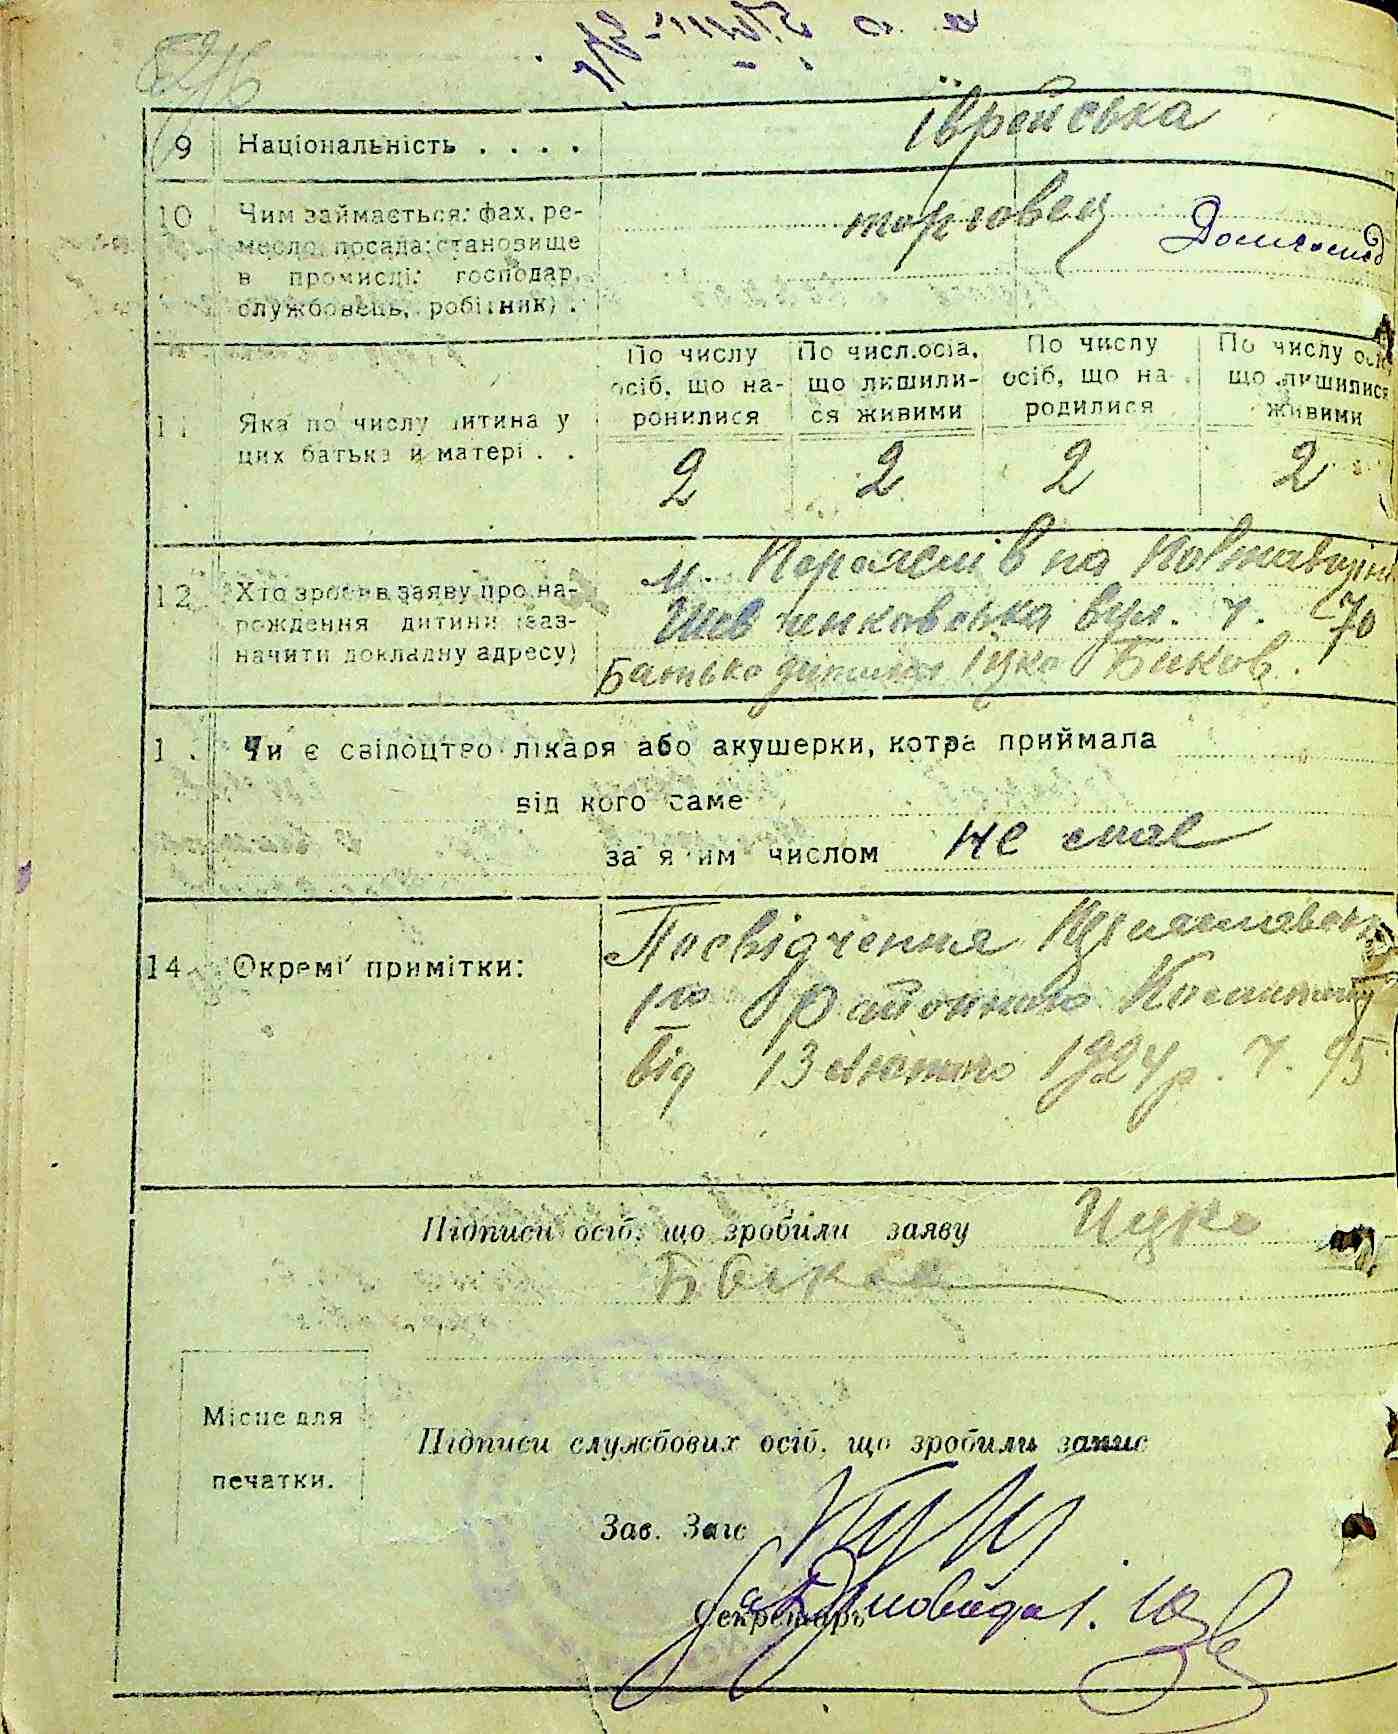 9 Національність . . . .
Їврейська
10 Чим займається: фах, ре-
месло, посада; становище
в промислі: господар,
службовець, робітник) .
торговец
По числу осіб, що на-ронилися
По числ.осіа, що лишили-ся живими
По числу осіб, що на-родилися
По числу осіб, що лишилися живими
11 Яка по числу дитина у
цих батька й матері . .
2 2 2 2
12 Хто зробив заяву про на-
рождення дитини (заз-
начити докладну адресу)
м. Переяслів на Полтавщині
Шевченковська вул. ч. 70
Батько дитини Іцко Биков.
1 . Чи є свідоцтво лікаря або акушерки, котра приймала
від кого саме
за яким числом не має
14 Окремі примітки:
Посвідчення
1го Районного Комитету
від 13 лютого 1924 р. ч. 95
Підписи осіб, що зробили заяву Ицко
Быков
Місце для
печатки.
Підписи службових осіб, що зробили запис
Зав. Загс
Секретарь